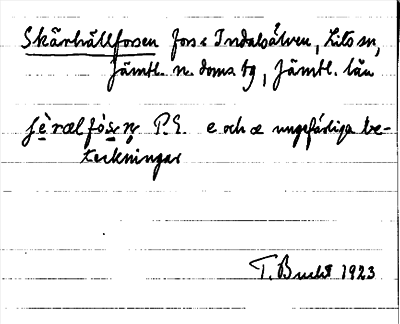 Skärhällforsen fors i Indalsälven, Lits sn,
Jämtl. n. doms tg, Jämtl. län
P.E. e och æ ungefärliga be-
teckningar
T. Bucht 1923